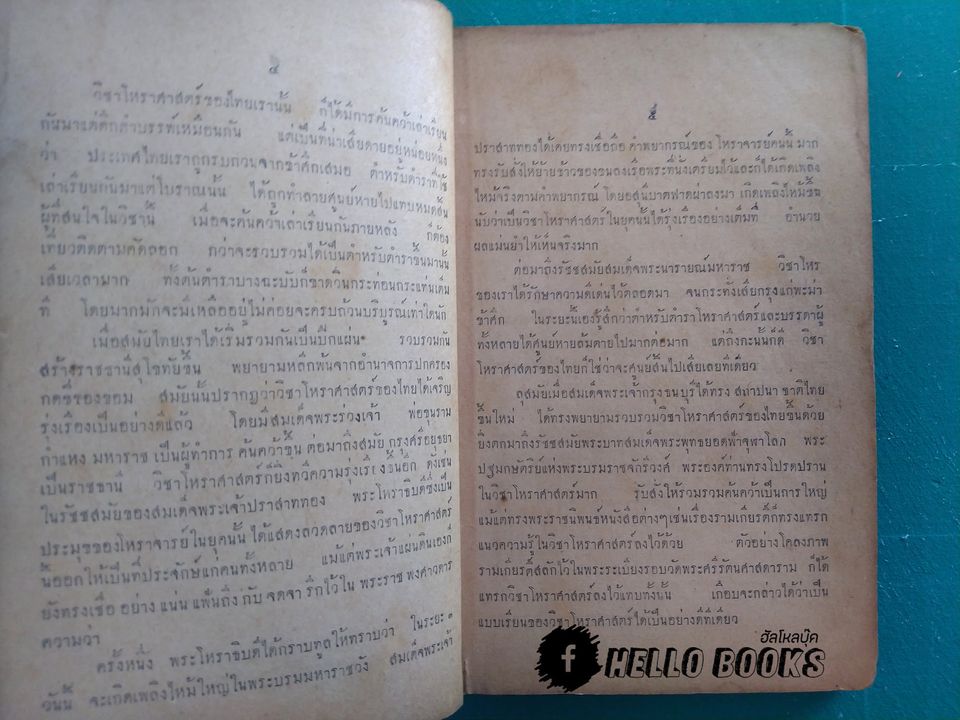 ๔
วิชาโหราศาสตร์ของไทยเรานั้น ก็ได้มีการค้นคว้าเล่าเรียน
กันมาแต่ดึกดำบรรท์เหมือนกัน แต่เป็นที่น่าเสียดายอยู่หน่อยหนึ่ง
ว่า ประเทศไทยเราถูกรบกวนจากข้าศึกเสมอ ตำหรับตำราที่ใช้
เล่าเรียนกันมาแต่โบราณนั้น ได้ถูกทำลายศูนย์หายไปแทบหมดสิ้น
ผู้ที่สนใจในวิชานี้ เมื่อจะค้นคว้าเล่าเรียนกันภายหลัง ก็ต้อง
เที่ยวติดตามคัดลอก กว่าจะรวบรวมได้เป็นตำหรับตำราขึ้นมานั้น
เสียเวลามาก ทั้งต้นตำราบางฉะบับก็ขาดวิ่นกระท่อนกระแท่นเต็ม
ที โดยมากมักจะมีเหลืออยู่ไม่ค่อยจะครบถ้วนบริบูรณ์เท่าใดนัก
เมื่อสมัยไทยเราได้เริ่มรวมกันเป็นปึกแผ่น รวบรวมกัน
สร้างราชธานีสุโขทัยขึ้น พยายามหลีกพ้นจากอำนาจการปกครอง
กดขี่ของขอม สมัยนั้นปรากฏว่าวิชาโหราศาสตร์ของไทยได้เจริญ
รุ่งเรืองเป็นอย่างดีแล้ว โดยมีสมเด็จพระร่วงเจ้า พ่อขุนราม
กำแหง มหาราช เป็นผู้ทำการ ค้นคว้าขึ้น ต่อมาถึงสมัย กรุงศรีอยุธยา
เป็นราชธานี วิชาโหราศาสตร์ก็ยิ่งทวีความรุ่งเรืองขึ้นอีก ดั่งเช่น
ในรัชชสมัยของสมเด็จพระเจ้าปราสาททอง พระโหราธิบดีซึ่งเป็น
ประมุขของโหราจารย์ในยุคนั้น ได้แสดงลวดลายของวิชาโหราศาสตร์
นี้ออกให้เป็นที่ประจักษ์แก่คนทั้งหลาย แม้แต่พระเจ้าแผ่นดินเองก็
ยังทรงเชื่อ อย่าง แน่น แฟ้นถึง กับ จดจา รึกไว้ใน พระราช พงศาวดาร
ความว่า
ครั้งหนึ่ง พระโหราธิบดีได้กราบทูลให้ทราบว่า ในระยะ ๓
วันนี้ จะเกิดเพลิงไหม้ใหญ่ในพระบรมมหาราชวัง สมเด็จพระเจ้า
๕
ปราสาททองได้เคยทรงเชื่อถือ คำพยากรณ์ของ โหราจารย์คนนี้ มาก
ทรงรับสั่งให้ย้ายข้าวของขนลงเรือพระที่นั่งเตรียมไว้และก็ได้เกิดเพลิง
ไหม้จริงตามคำพยากรณ์ โดยอสุนีบาตฟาดผ่าลงมา เกิดเพลิงไหม้ขึ้น
นับว่าเป็นวิชาโหราศาสตร์ในยุคนั้นได้รุ่งเรืองอย่างเต็มที่ อำนวย
ผลแม่นยำให้เห็นจริงมาก
ต่อมาถึงรัชชสมัยสมเด็จพระนารายณ์มหาราช วิชาโหร
ของเราได้รักษาความดีเด่นไว้ตลอดมา จนกระทั่งเสียกรุงแก่พะม่า
ข้าศึก ในระยะนี้เองรู้สึกว่าตำหรับตำราโหราศาสตร์และบรรดาผู้
ทั้งหลายได้ศูนย์หายล้มตายไปมากต่อมาก แต่ถึงกะนั้นก็ดี วิชา
โหราศาสตร์ของไทยก็ใช่ว่าจะศูนย์สิ้นไปเสียเลยทีเดียว
ลุสมัยเมื่อสมเด็จพระเจ้ากรุงธนบุรีได้ทรง สถาปนา ชาติไทย
ขึ้นใหม่ ได้ทรงพยายามรวบรวมวิชาโหราศาสตร์ของไทยขึ้นด้วย
ยิ่งตกมาถึงรัชชสมัยพระบาทสมเด็จพระพุทธยอดฟ้าจุฬาโลก พระ
ปฐมกษัตริย์แห่งพระบรมราชจักรีวงศ์ พระองค์ท่านทรงโปรดปราน
ในวิชาโหราศาสตร์มาก รับสั่งให้รวมรวมค้นคว้าเป็นการใหญ่
แม้แต่ทรงพระราชนิพนธ์หนังสือต่างๆเช่นเรื่องรามเกียรติ์ก็ทรงแทรก
แนวความรู้ในวิชาโหราศาสตร์ลงไว้ด้วย ตัวอย่างโคลงภาพ
รามเกียรติ์สลักไว้ในพระระเบียงรอบวัดพระศรีรัตนศาสดาราม ก็ได้
แทรกวิชาโหราศาสตร์ลงไว้แทบทั้งนั้น เกือบจะกล่าวได้ว่าเป็น
แบบเรียนของวิชาโหราศาสตร์ได้เป็นอย่างดีทีเดียว
ฮัลโหลบุ๊ค
f HELLO BOOKS